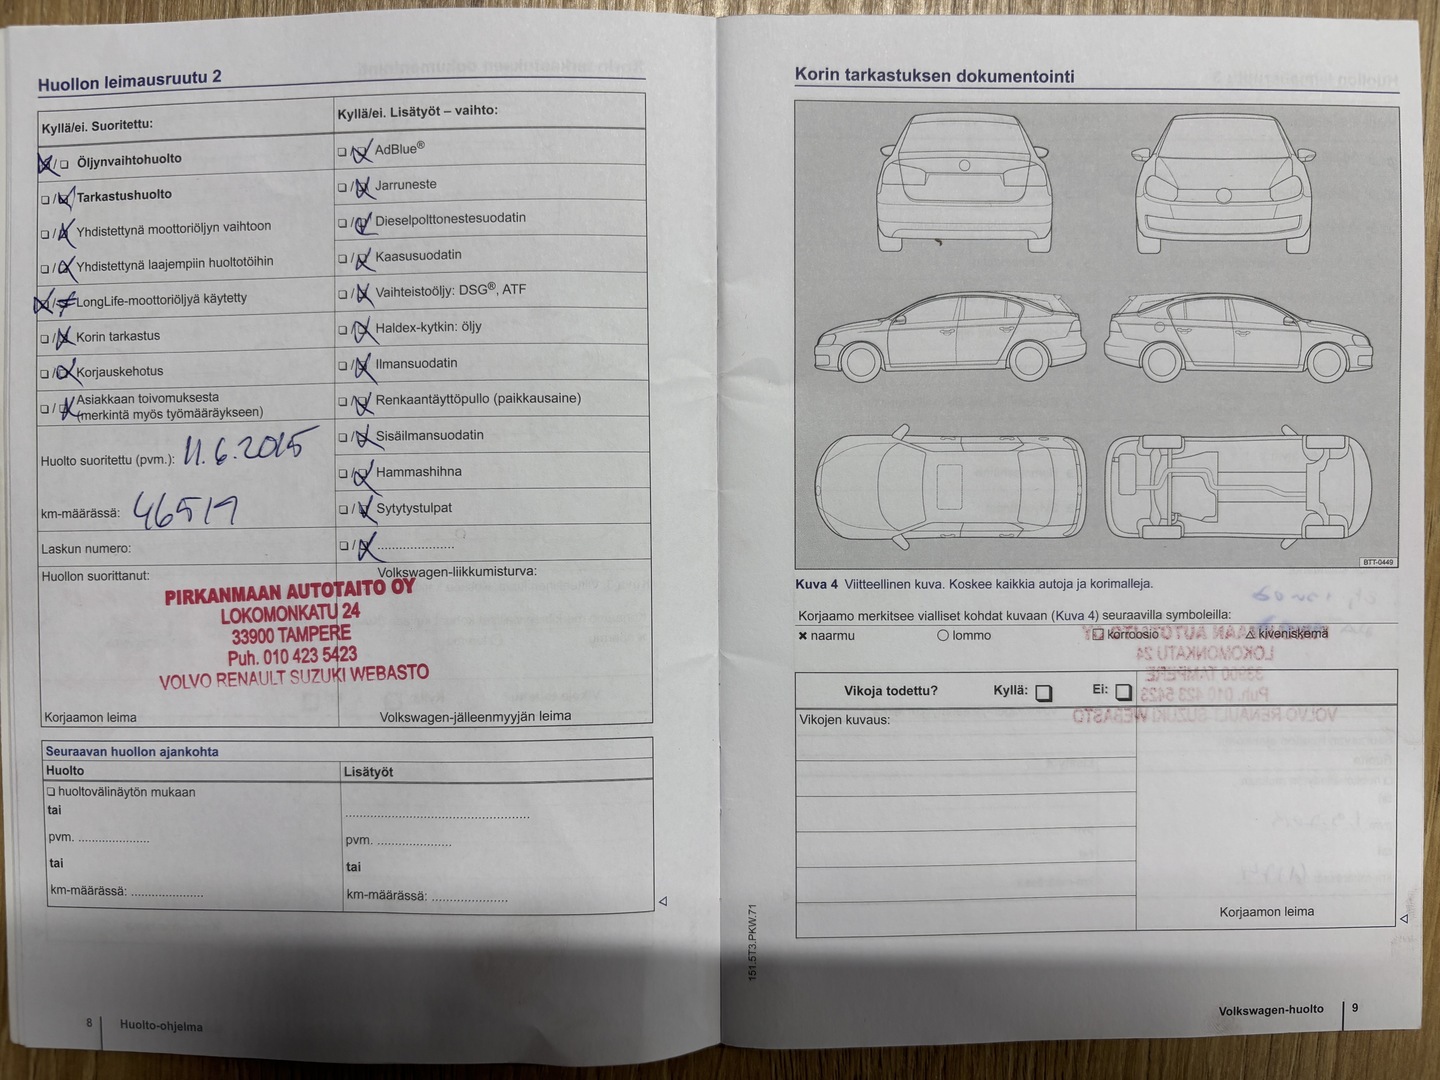 Huollon leimausruutu 2
Kyllä/ei. Suoritettu:
Öljynvaihtohuolto
Tarkastushuolto
Yhdistettynä moottoriöljyn vaihtoon
Yhdistettynä laajempiin huoltotöihin
LongLife-moottoriöljyä käytetty
Korin tarkastus
Korjauskehotus
Asiakkaan toivomuksesta
(merkintä myös työmääräykseen)
Huolto suoritettu (pvm.): 11.6.2015
km-määrässä: 46519
Laskun numero:
Kyllä/ei. Lisätyöt – vaihto:
AdBlue®
Jarruneste
Dieselpolttonestesuodatin
Kaasusuodatin
Vaihteistoöljy: DSG®, ATF
Haldex-kytkin: öljy
Ilmansuodatin
Renkaantäyttöpullo (paikkausaine)
Sisäilmansuodatin
Hammashihna
Sytytystulpat
.....................
Huollon suorittanut:
Volkswagen-liikkumisturva:
PIRKANMAAN AUTOTAITO OY
LOKOMONKATU 24
33900 TAMPERE
Puh. 010 423 5423
VOLVO RENAULT SUZUKI WEBASTO
Korjaamon leima
Volkswagen-jälleenmyyjän leima
Seuraavan huollon ajankohta
Huolto
Lisätyöt
huoltovälinäytön mukaan
tai
pvm. ....................
tai
km-määrässä: ....................
.....................................................
pvm. .....................
tai
km-määrässä: .....................
8 Huolto-ohjelma
Korin tarkastuksen dokumentointi
BTT-0449
Kuva 4 Viitteellinen kuva. Koskee kaikkia autoja ja korimalleja.
Korjaamo merkitsee vialliset kohdat kuvaan (Kuva 4) seuraavilla symboleilla:
naarmu lommo korroosio kiveniskemä
Vikoja todettu? Kyllä: Ei:
Vikojen kuvaus:
Korjaamon leima
151.5T3.PKW.71
Volkswagen-huolto 9